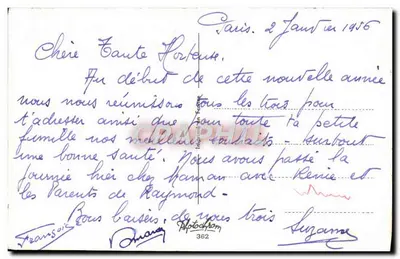 Paris. 2 Janvier 1956
Chère Tante Hortense.
Au début de cette nouvelle année
nous nous réunissons tous les trois pour
t'adresser ainsi que pour toute ta petite
famille nos meilleurs souhaits - surtout
une bonne santé. Nous avons passé la
journée hier chez maman avec Renée et
les Parents de Raymond -
Bons baisers de nous trois
François Suzanne
Photochrom
302